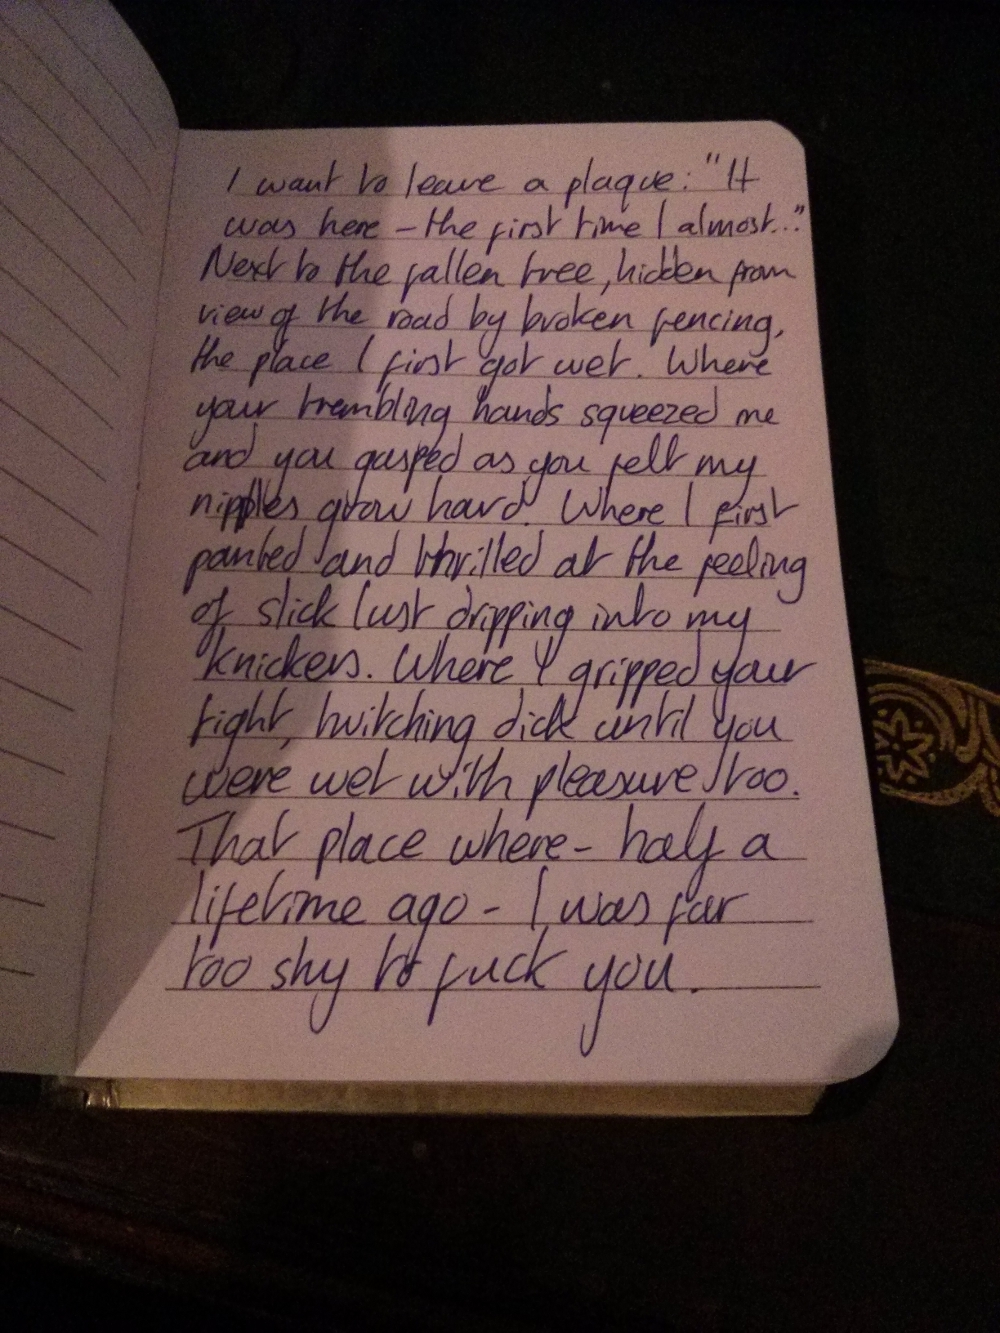 I want to leave a plaque: "It
was here – the first time I almost..."
Next to the fallen tree, hidden from
view of the road by broken fencing,
the place I first got wet. Where
your trembling hands squeezed me
and you gasped as you felt my
nipples grow hard. Where I first
panted and thrilled at the feeling
of slick lust dripping into my
knickers. Where I gripped your
tight, twitching dick until you
were wet with pleasure too.
That place where – half a
lifetime ago – I was far
too shy to fuck you.